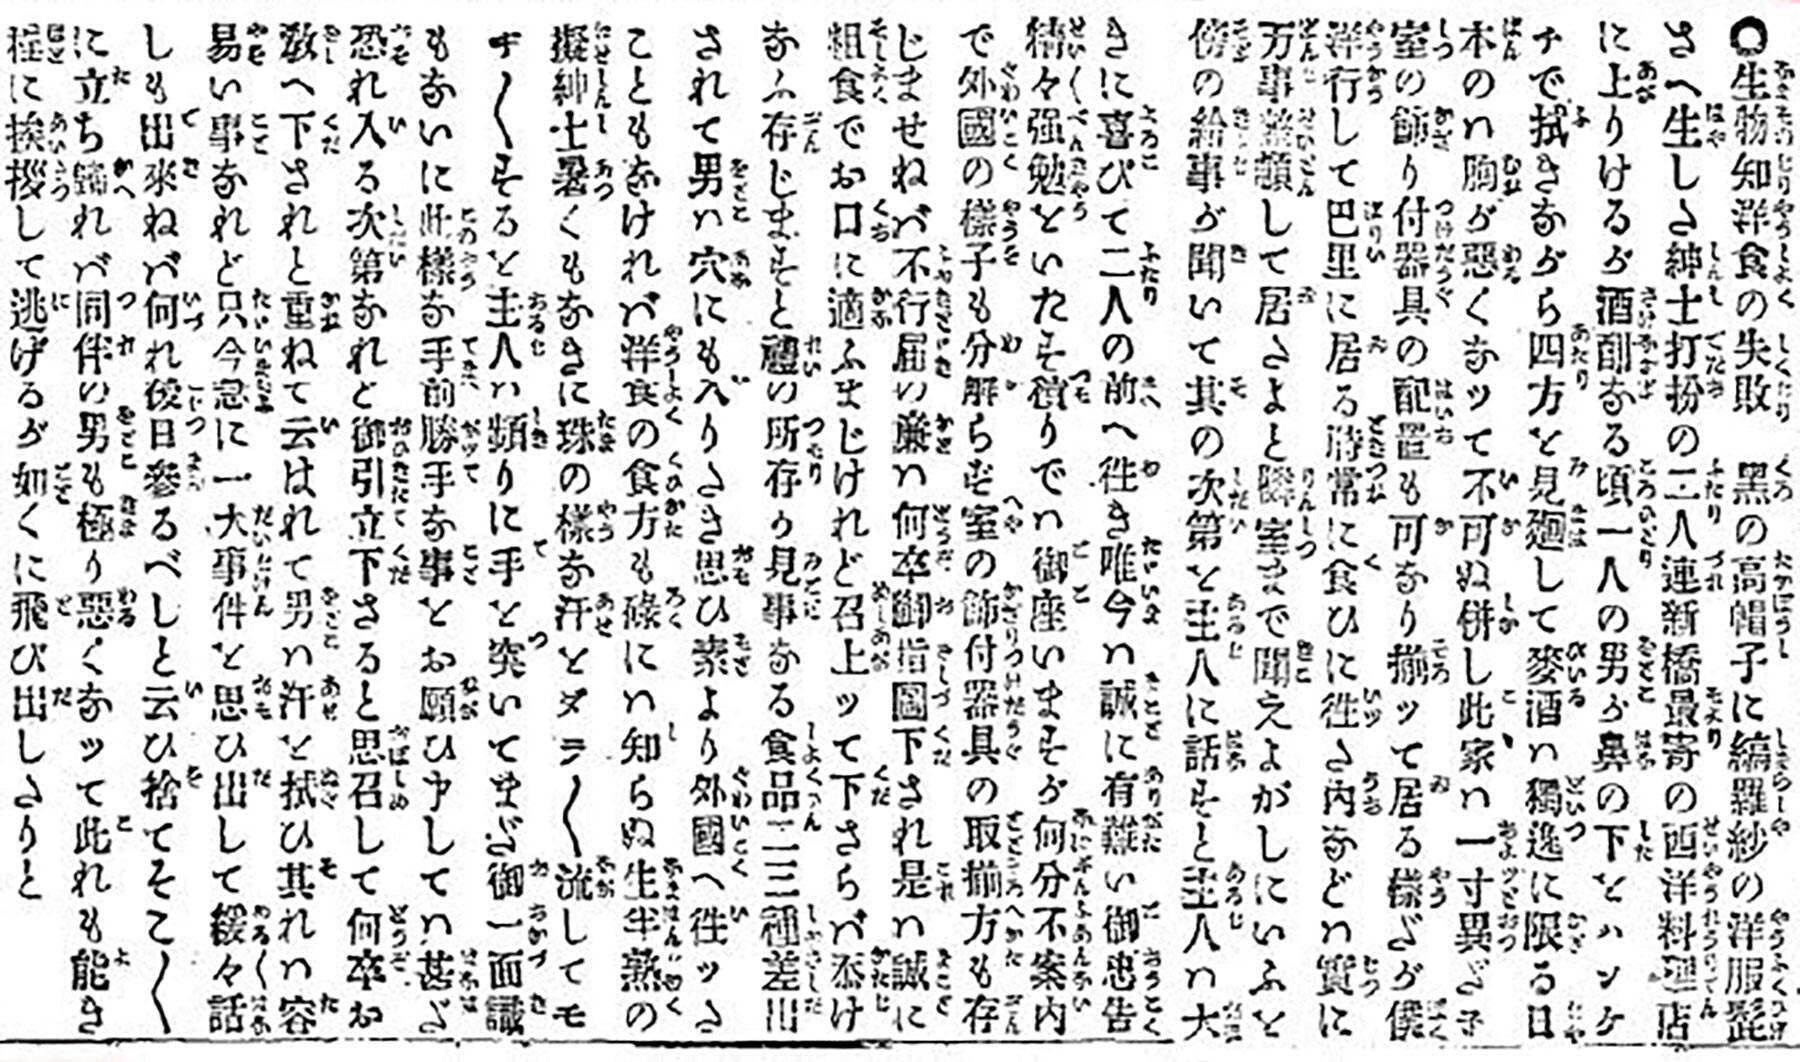 〇生物知洋食の失敗　黒の高帽子に縞羅紗の洋服髭
さへ生しさ紳士打扮の二人連新橋最寄の西洋料理店
に上りけるが酒酣なる頃一人の男が鼻の下をハンケ
チで拭きながら四方を見廻して麥酒ハ獨逸に限る日
本のハ胸が惡くなッて不可ぬ併し此家ハ一寸異ざ子
室の飾り付器具の配置も可なり揃ッて居る樣ざが僕
洋行して巴里に居る時常に食ひに徃さ内などハ實に
万事整頓して居さよと隣室まで聞えよがしにいふを
傍の給事が聞いて其の次第を主人に話すと主人ハ大
きに喜びて二人の前へ徃き唯今ハ誠に有難い御忠告
精々强勉をいたす積りでハ御座いますが何分不案内
で外國の樣子も分解らず室の飾付器具の取揃方も存
じませねバ不行届の廉ハ何卒御指圖下され是ハ誠に
粗食でお口に適ふまじけれど召上ッて下さらバ忝け
なふ存じますと禮の所存か見事なる食品二三種差出
されて男ハ穴にも入りさき思ひ素より外國へ徃ッさ
こともなけれバ洋食の食方も碌にハ知らぬ生半熟の
擬紳士暑くもなきに珠の樣な汗をダラ〱流してモ
ヂ〱するを主人ハ頻りに手を突いてまざ御一面識
もないに此樣な手前勝手な事をお願ひ申してハ甚ざ
恐れ入る次第なれど御引立下さると思召して何卒お
敎へ下されと重ねて云はれて男ハ汗を拭ひ其れハ容
易い事なれど只今急に一大事件を思ひ出して緩々話
しも出來ねバ何れ後日參るべしと云ひ捨てそこ〱
に立ち歸れバ同伴の男も極り惡くなッて此れも能き
程に挨拶して逃げるが如くに飛び出しさりと